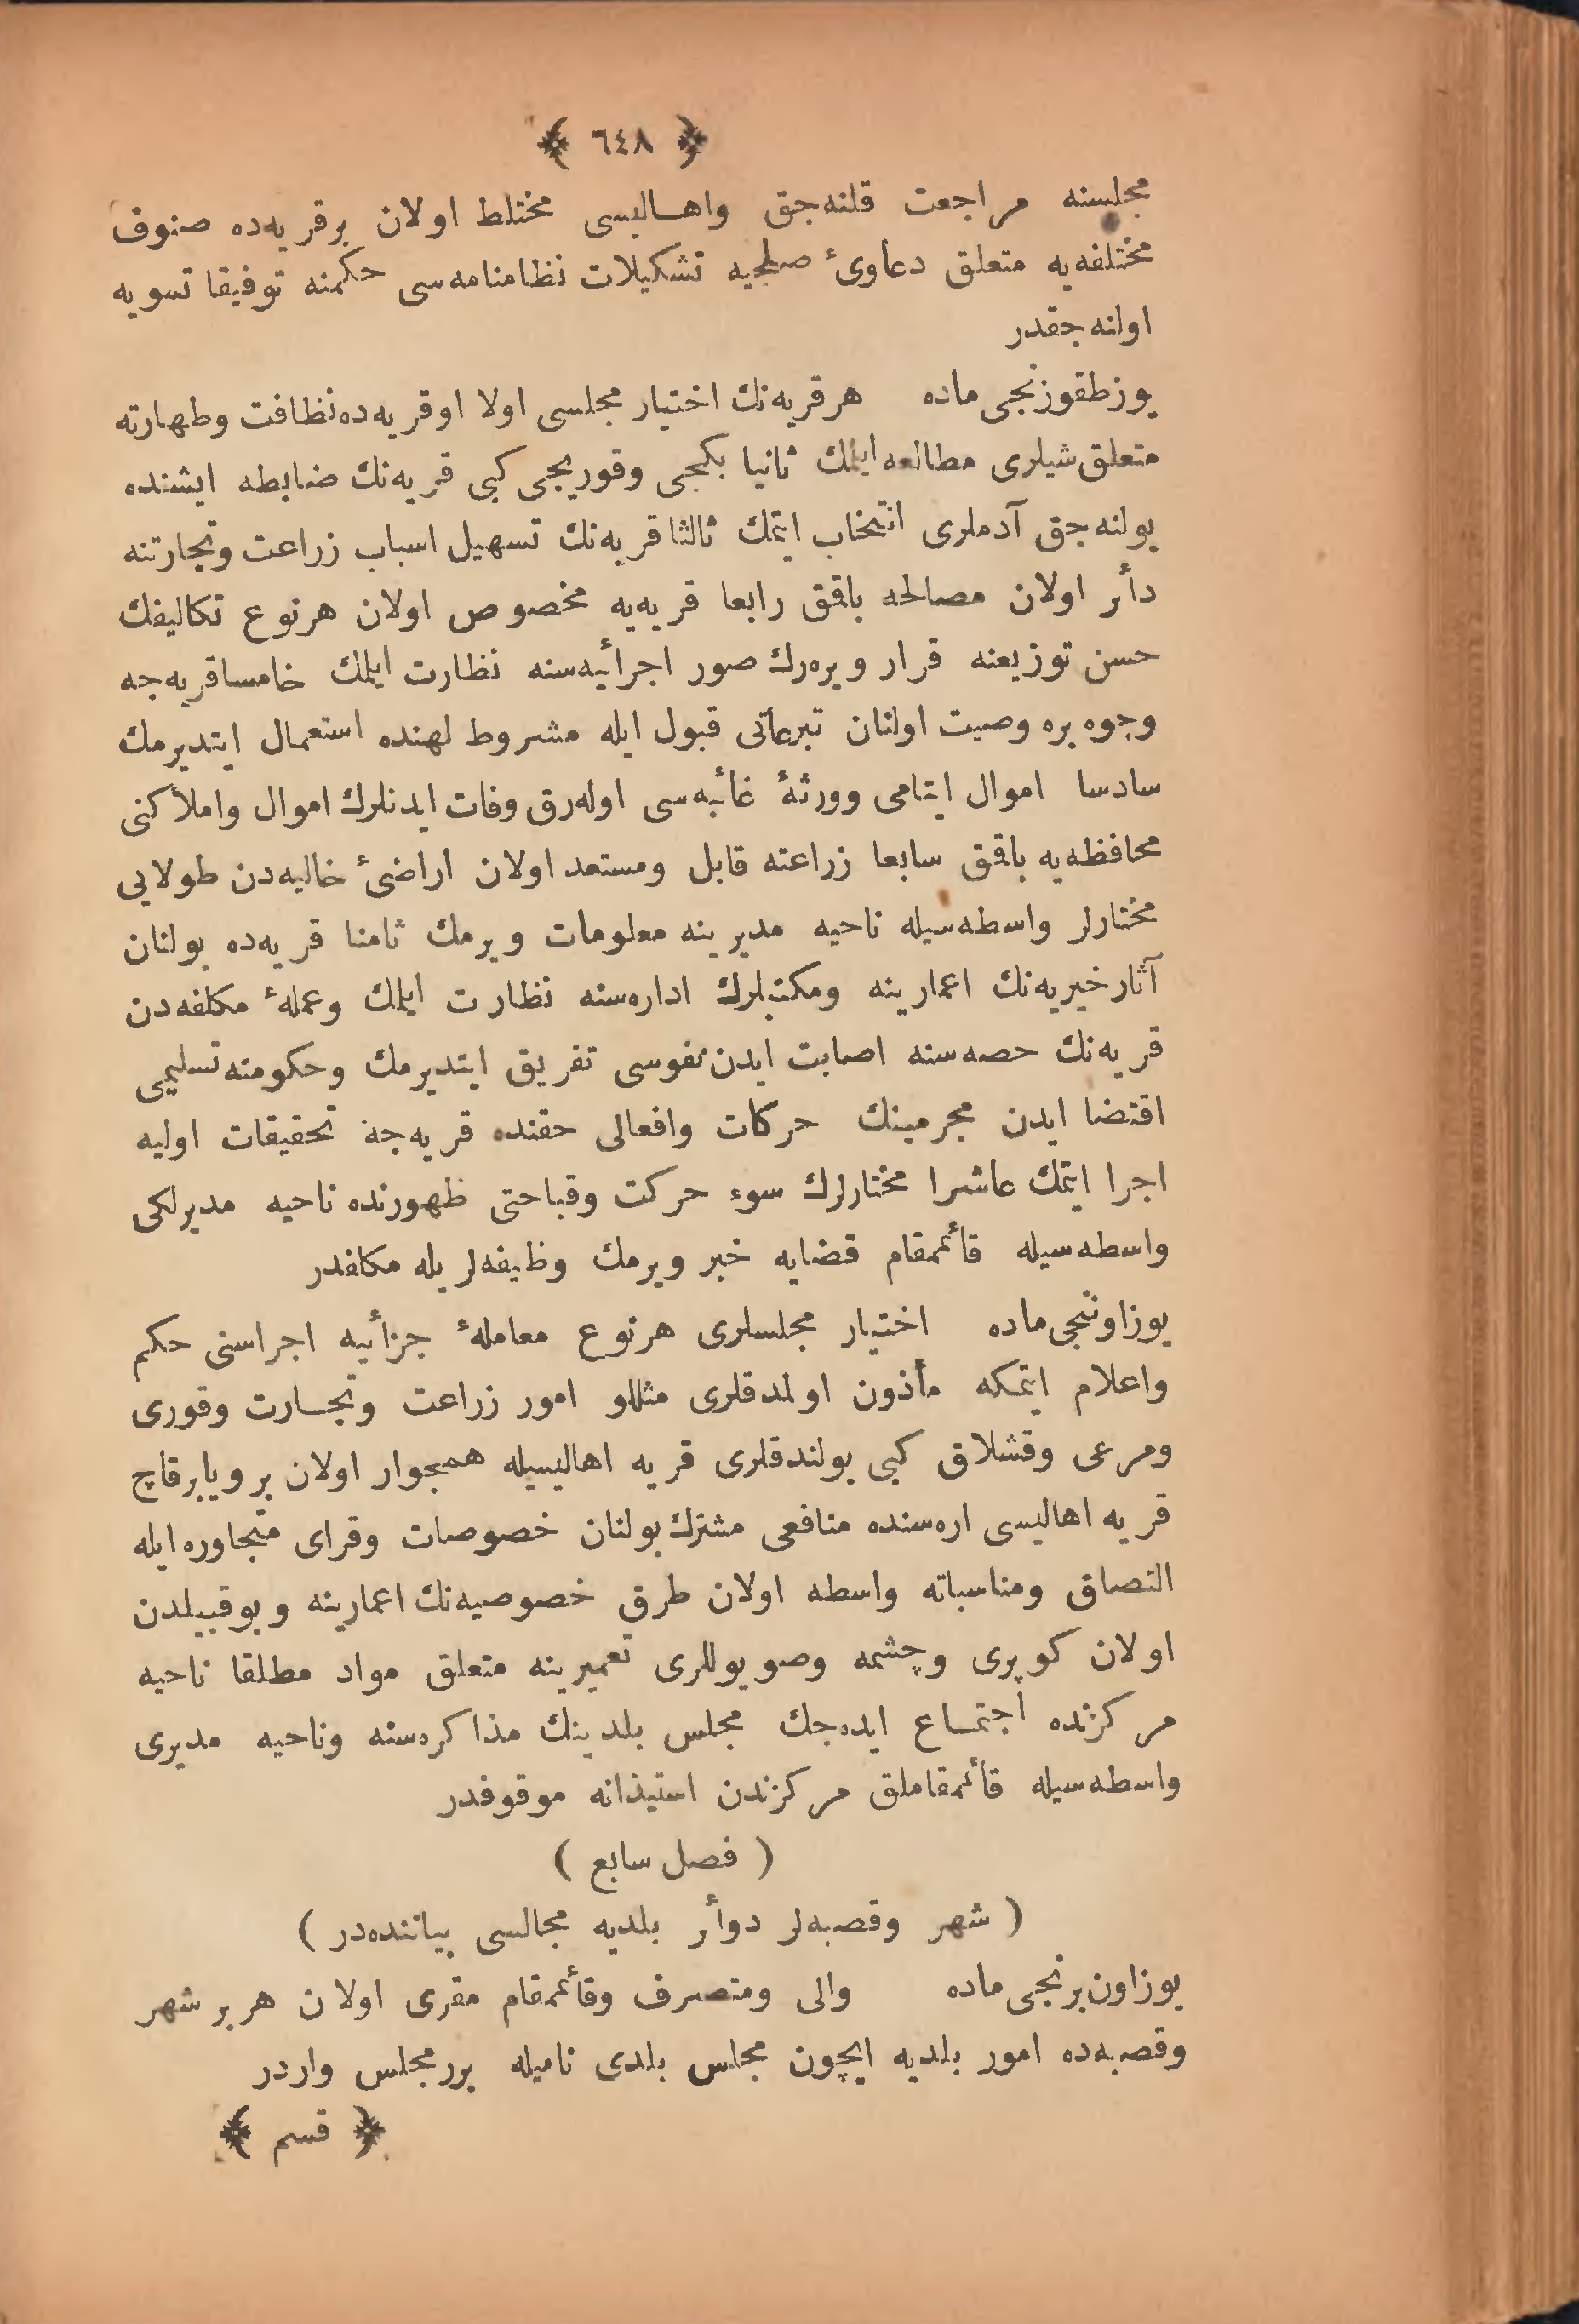 ﴿ ٦٤٨ ﴾
مجلسنه مراجعت قلنه‌جق واهــالیسی مختلط اولان برقریه‌ده صنوف
مختلفه‌یه متعلق دعاویٔ صلحیه تشکیلات نظامنامه‌سی حکمنه توفیقا تسویه
اولنه‌جقدر
یوزطقوزنجی ماده هرقریه‌نك اختیار مجلسی اولا اوقریه‌ده نظافت وطهارته
متعلق شیلری مطالعه ایلمك ثانیا بکجی وقوریجی کبی قریه‌نك ضابطه ایشنده
بولنه‌جق آدملری انتخاب ایتمك ثالثا قریه‌نك تسهیل اسباب زراعت وتجارتنه
دأر اولان مصالحه باقمق رابعا قریه‌یه مخصوص اولان هرنوع تکالیفك
حسن توزیعنه قرار ویره‌رك صور اجرأیه‌سنه نظارت ایلمك خامسا قریه‌جه
وجوه بره وصیت اولنان تبرعاتی قبول ایله مشروط لهنده استعمال ایتدیرمك
سادسا اموال ایتامی وورثهٔ غائبه‌سی اوله‌رق وفات ایدنلرك اموال واملاکنی
محافظه‌یه باقمق سابعا زراعته قابل ومستعد اولان اراضیٔ خالیه‌دن طولایی
مختارلر واسطه‌سیله ناحیه مدیرینه معلومات ویرمك ثامنا قریه‌ده بولنان
آثار خیریه‌نك اعمارینه ومکتبلرك اداره‌سنه نظارت ایلمك وعملهٔ مکلفه‌دن
قریه‌نك حصه‌سنه اصابت ایدن نفوسی تفریق ایتدیرمك وحکومته تسلیمی
اقتضا ایدن مجرمینك حرکات وافعالی حقنده قریه‌جه تحقیقات اولیه
اجرا ایتمك عاشرا مختارلرك سوء حرکت وقباحتی ظهورنده ناحیه مدیرلکی
واسطه‌سیله قأئممقام قضایه خبر ویرمك وظیفه‌لریله مکلفدر
یوزاوننجی ماده اختیار مجلسلری هرنوع معاملهٔ جزأئیه اجراسنی حکم
واعلام ایتمکه مأذون اولمدقلری مثللو امور زراعت وتجــارت وقوری
ومرعی وقشلاق کبی بولندقلری قریه اهالیسیله همجوار اولان بر ویابرقاچ
قریه اهالیسی اره‌سنده منافعی مشترك بولنان خصوصات وقرای متجاوره ایله
التصاق ومناسباته واسطه اولان طرق خصوصیه‌نك اعمارینه وبوقبیلدن
اولان کوپری وچشمه وصو یوللری تعمیرینه متعلق مواد مطلقا ناحیه
مرکزنده اجتمــاع ایده‌جك مجلس بلدینك مذاکره‌سنه وناحیه مدیری
واسطه‌سیله قأئممقاملق مرکزندن استیذانه موقوفدر
( فصل سابع )
( شهر وقصبه‌لر دوأر بلدیه مجالسی بیاننده‌در )
یوزاون برنجی ماده والی ومتصرف وقأئممقام مقری اولان هر بر شهر
وقصبه‌ده امور بلدیه ایچون مجلس بلدی نامیله بررمجلس واردر
﴿ قسم ﴾